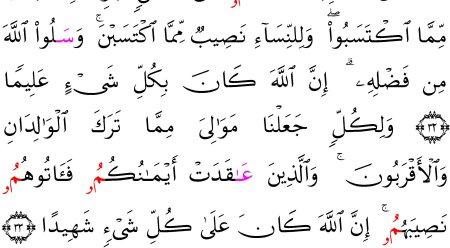 مِّمَّا ٱكْتَسَبُوا۟ ۖ وَلِلنِّسَآءِ نَصِيبٌ مِّمَّا ٱكْتَسَبْنَ ۚ وَسَلُوا۟ ٱللَّهَ
مِن فَضْلِهِۦٓ ۗ إِنَّ ٱللَّهَ كَانَ بِكُلِّ شَىْءٍ عَلِيمًا
۝٣٢ وَلِكُلٍّ جَعَلْنَا مَوَٰلِىَ مِمَّا تَرَكَ ٱلْوَٰلِدَانِ
وَٱلْأَقْرَبُونَ ۚ وَٱلَّذِينَ عَٰقَدَتْ أَيْمَٰنُكُمُۥ فَـَٔاتُوهُمُۥ
نَصِيبَهُمُۥٓ ۚ إِنَّ ٱللَّهَ كَانَ عَلَىٰ كُلِّ شَىْءٍ شَهِيدًا ۝٣٣